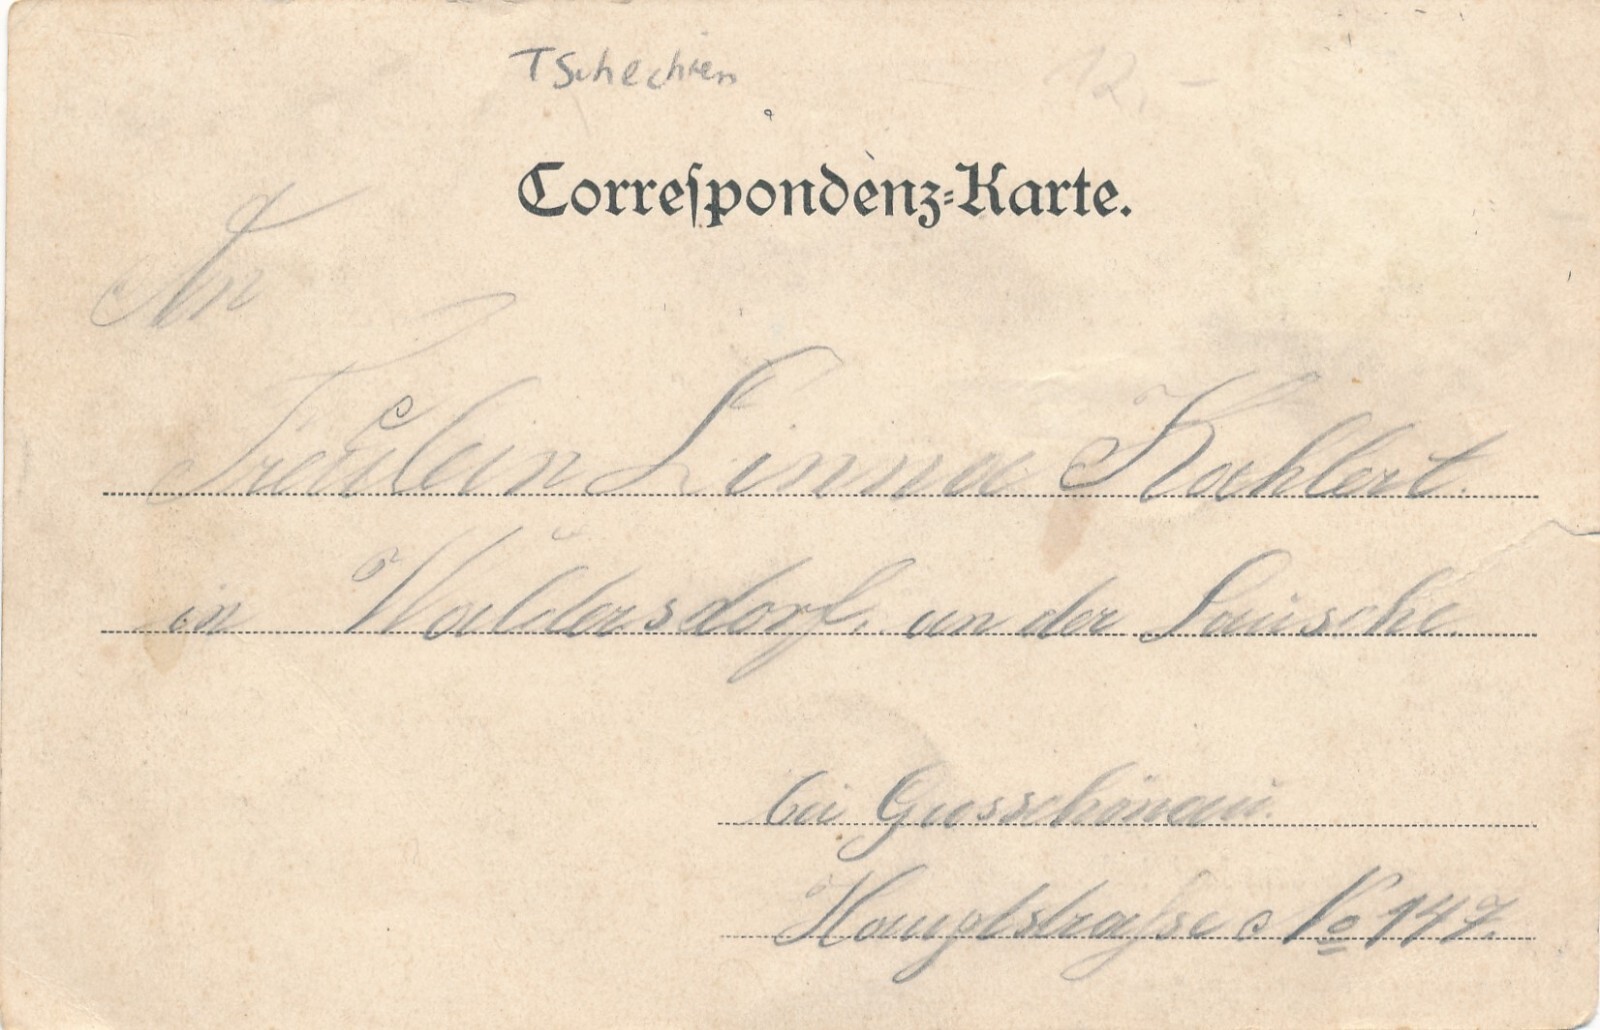 Tschechien
12,-
Correspondenz-Karte.
An
Fräulein Linna Koehlert.
in Waltersdorf, an der Lausche.
bei Grosschönau.
Hauptstrasse No 147.